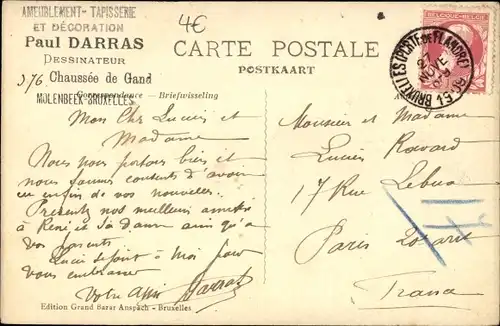 AMEUBLEMENT- TAPISSERIE
ET DÉCORATION
Paul DARRAS
DESSINATEUR
376 Chaussée de Gand
MOLENBEEK-BRUXELLES
4€
CARTE POSTALE
POSTKAART
Correspondance — Briefwisseling
BELGIQUE-BELGIË
BRUXELLES (PORTE DE FLANDRE)
27
NOVE
1909
Mon Cher Lucien et
Madame
Nous nous portons bien et
nous sommes contents d'avoir
eu enfin de vos nouvelles.
Présentez nos meilleurs amitiés
à René et sa dame ainsi qu'à
vos parents
Luci se joint à Moi pour
vous embrasser
Votre Ami Darras
Monsieur et Madame
Lucien Ravard
17 Rue
Paris 20 arrt
France
17
Edition Grand Bazar Anspach - Bruxelles